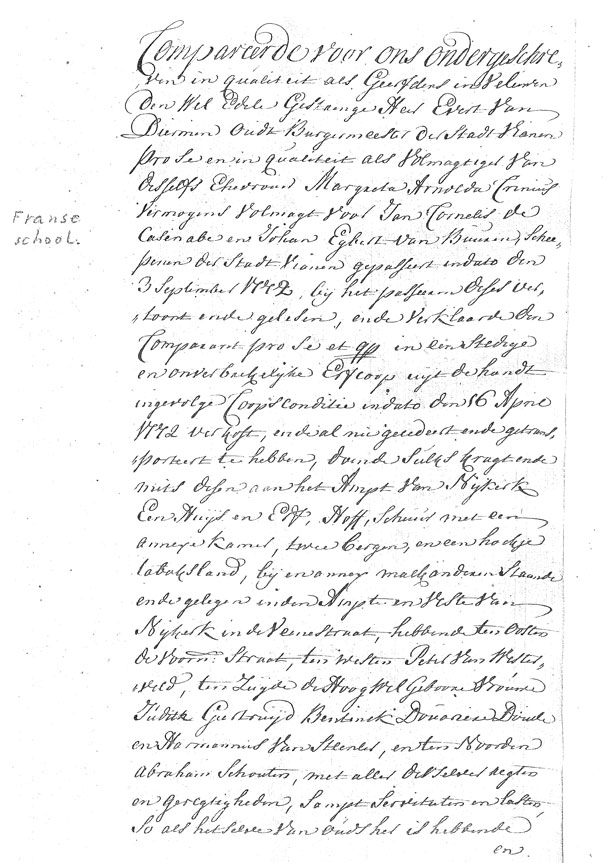 Compareerde voor ons ondergeschre,,
,,ven in qualiteit als Geerfdens in Veluwen
Den Wel Edele Gestrenge Heer Evert Van
Diermen Oudt Burgermeester der Stadt Vianen
pro se en in qualiteit als Volmagtiger van
desselfs Ehevrouw Margareta Arnolda
Vermogens Volmagt voor Jan Cornelis de
en Johan Egbert van Buuren, Schee,,
penen der Stadt Vianen gepasseert in dato den
3 September 1772, bij het passeeren deses ver,,
,,toont ende gelesen, ende verklaarde den
Comparant pro se et qq in een Stedige
en onverbrekelijke Erfcoop uijt de handt
ingevolge Coopsconditie in dato den 16 April
1772 verkoft, ende al nu gecedeert ende getrans,,
,,porteert te hebben, doende sulks kragt ende
mits desen aan het Ampt van Nijkerk
Een Huijs en Erf, Hoff, Schuur met een
annexe kamer, twee bergen, en een hoekje
tabaksland, bij en annex malkanderen Staande
ende gelegen in den Ampte en Veste van
Nijkerk in de Venestraat, hebbende ten Oosten
de Voorn: Straat, ten westen Peter van Wester,,
,,veld, ten Zuyde de Hoog Wel Geboore Vrouwe
Judith Geertruijd Bentinck Douariere
en Harmannus van Steenler, en ten Noorden
Abraham Schouten, met alle derselver regten
en geregtigheden, Sampt Servituten en lasten,
so als hetselve van oudsher is hebbende
en
Franse
school.